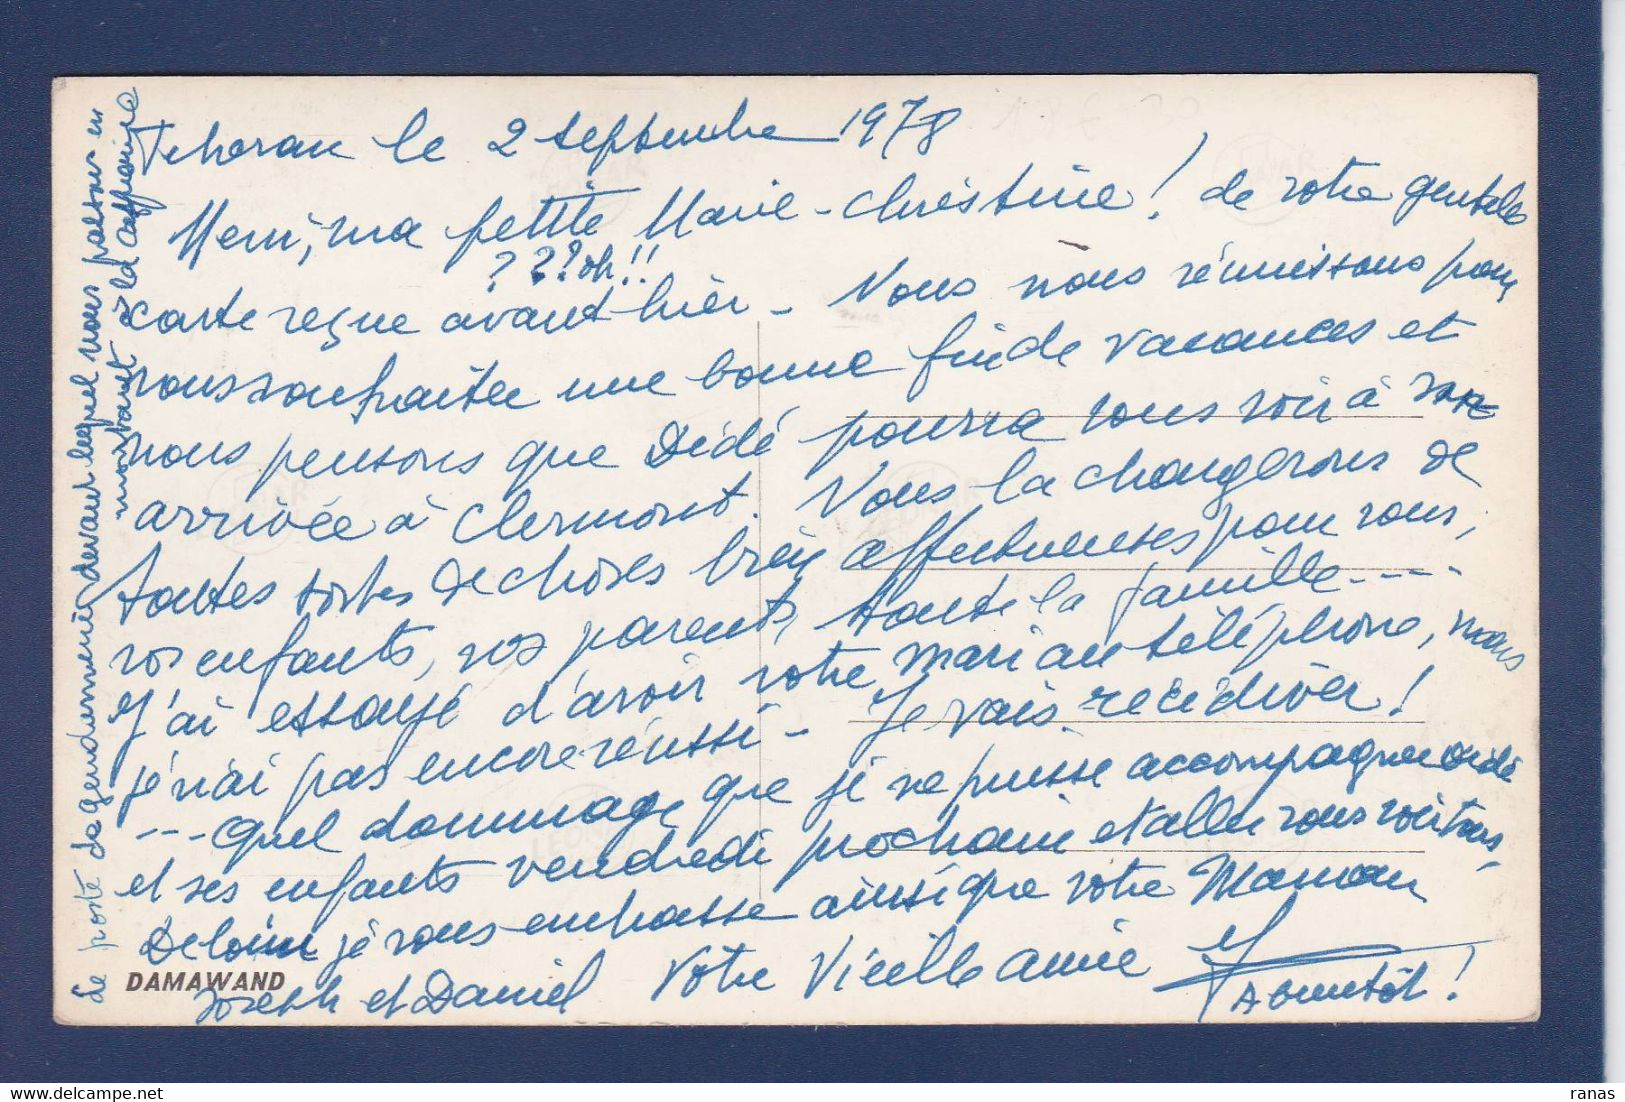 Teheran le 2 septembre 1978
Merci, ma petite Marie-Christine! de votre gentille
???oh!!
carte reçue avant hier - Nous nous réunissons pour
vous souhaiter une bonne fin de vacances et
nous pensons que Dédé pourra vous voir à son
arrivée à Clermont. Nous la chargerons de
toutes sortes de choses bien affectueuses pour vous,
vos enfants, vos parents, toute la famille ----
J'ai essayé d'avoir votre mari au téléphone, mais
je n'ai pas encore réussi - Je vais récidiver!
--- Quel dommage que je ne puisse accompagner Dédé
et ses enfants vendredi prochain et aller vous voir tous,
De loin je vous embrasse ainsi que votre Maman
Joseph et Daniel Votre Vieille amie
A bientôt!
DAMAWAND
Le poste de gendarmerie devant lequel nous passons en
montant à la Caspienne
ranas